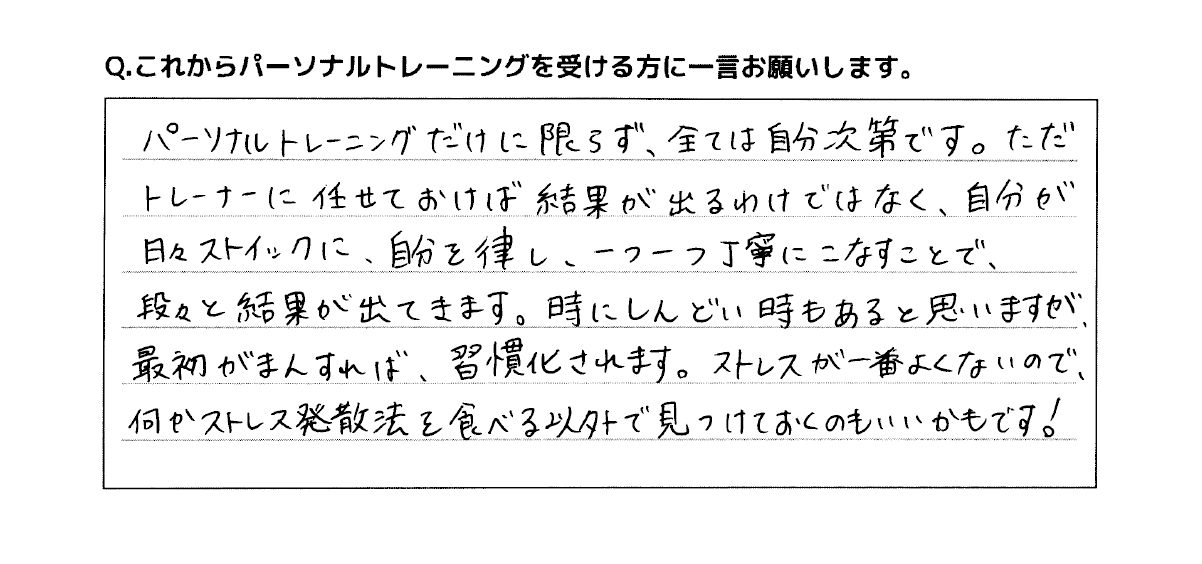 Q.これからパーソナルトレーニングを受ける方に一言お願いします。
パーソナルトレーニングだけに限らず、全ては自分次第です。ただ
トレーナーに任せておけば結果が出るわけではなく、自分が
日々ストイックに、自分を律し、一つ一つ丁寧にこなすことで、
段々と結果が出てきます。時にしんどい時もあると思いますが、
最初がまんすれば、習慣化されます。ストレスが一番よくないので、
何かストレス発散法を食べる以外で見つけておくのもいいかもです!